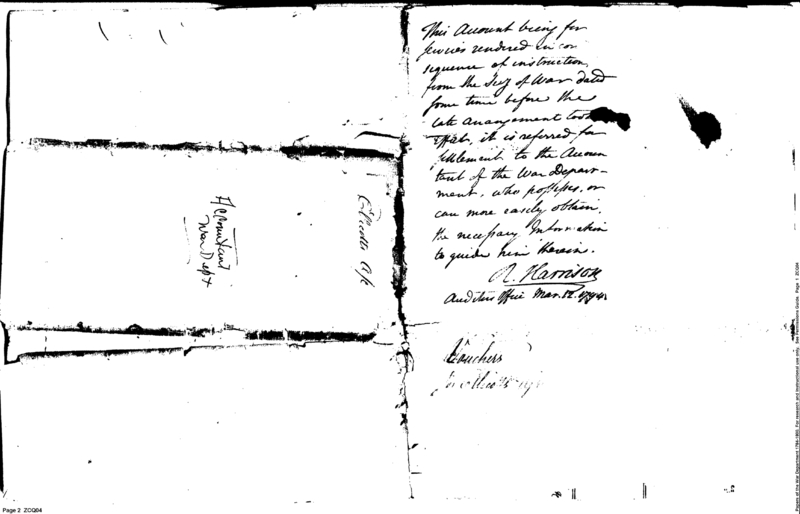 Accountant
War Dept
This Account being for
services rendered in con
sequence of instruction
from the Secy of War dated
some time before the
late arrangement took
effect, it is referred for
settlement to the Accoun
tant of the War Depart-
ment, who possesses, or
can more easily obtain,
the necessary Information
to guide him therein.
R. Harrison
Auditors Office Mar. 12.
Vouchers
Page 2 ZCQ64
Papers of the War Department 1784-1800. For research and instructional use only. See
Page 1 ZCQ64